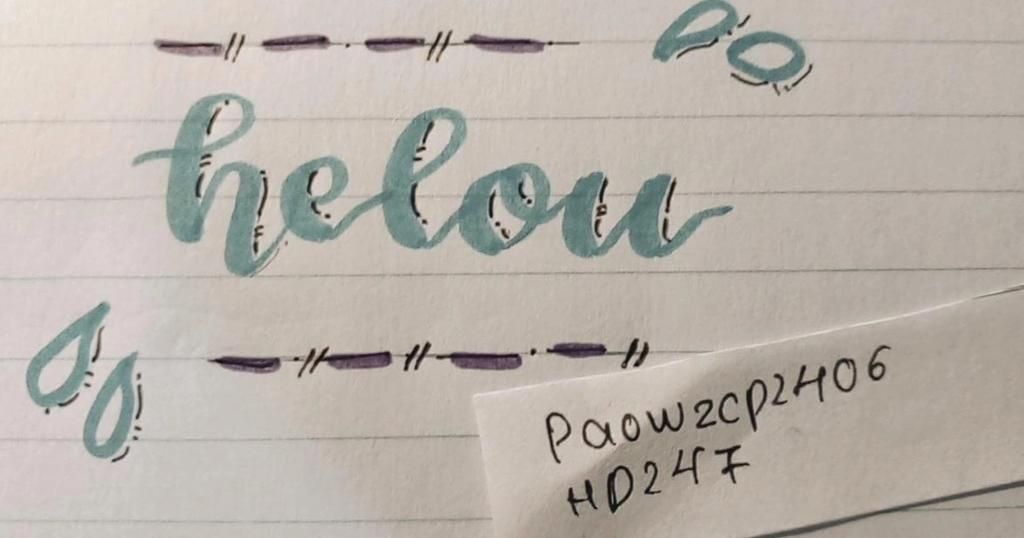 helou
Paowzcp2406
HD247